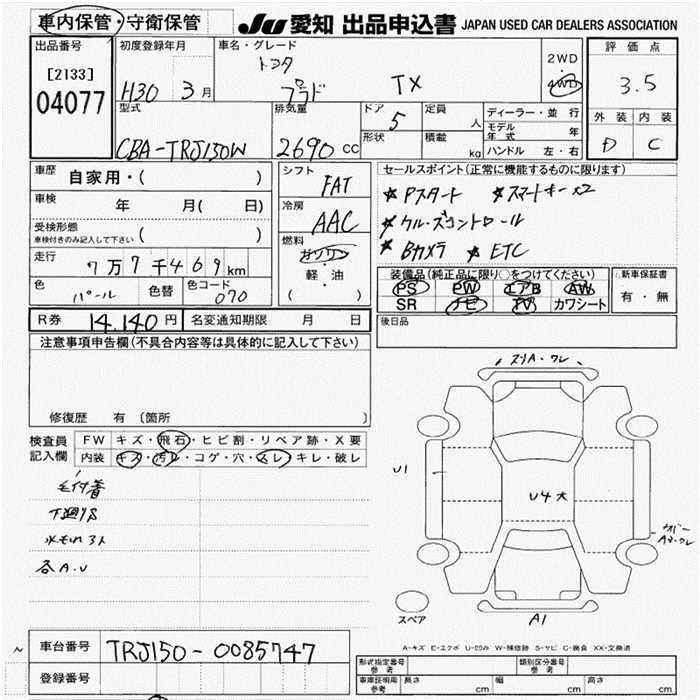 車内保管・守衛保管
JU 愛知 出品申込書 JAPAN USED CAR DEALERS ASSOCIATION
出品番号
[2133]
04077
初度登録年月
H30 3月
車名・グレード
トヨタ
プラド TX
2WD
4WD
評価点
3.5
外装 内装
D C
型式
CBA-TRJ150W
排気量
2690 cc
ドア 5
形状
定員 人
積載 kg
ディーラー・並行
モデル年式 年
ハンドル 左・右
車歴 自家用・( )
車検 年 月( 日)
受検形態
車検付きのみ記入して下さい ( )
走行 7万7千469km
色 パール 色替 色コード 070
シフト FAT
冷房 AAC
燃料
ガソリン
軽・油
( )
セールスポイント(正常に機能するものに限ります)
★Pスタート ★スマートキー×2
★クルーズコントロール
★Bカメラ ★ETC
装備品(純正品に限り○をつけてください)
PS PW エアB AW
SR ナビ TV カワシート
新車保証書
有・無
R券 14,140円 名変通知期限 月 日
後日品
注意事項申告欄(不具合内容等は具体的に記入して下さい)
修復歴 有〔箇所 〕
検査員記入欄
FW キズ・飛石・ヒビ割・リペア跡・X要
内装 キズ・汚レ・コゲ・穴・スレ・キレ・破レ
毛付着
下廻りS
水もれ
各A.U
スリA・ワレ
U1
U4大
A3.ワレ
スペア
A1
A-キズ E-エクボ U-凹み W-補修跡 S-サビ C-腐食 XX-交換済
車台番号 TRJ150-0085747
登録番号
形式指定番号 参考
類別区分番号 参考
車庫証明用 参考 長さ cm 幅 cm 高さ cm